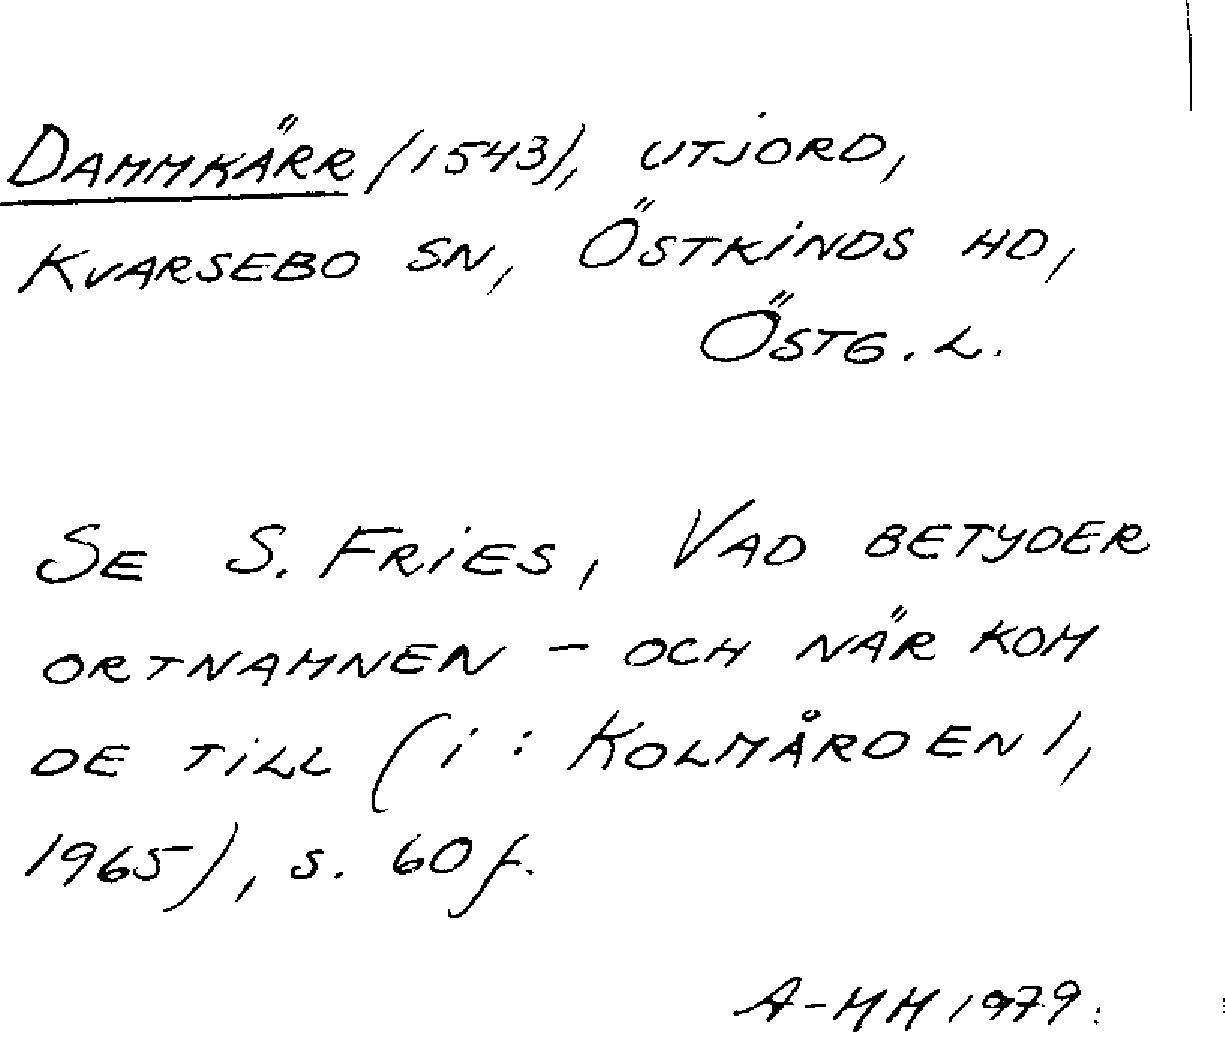 DAMMKÄRR (1543), UTJORD,
KVARSEBO SN, ÖSTKINDS HD,
ÖSTG. L.
SE S. FRIES, VAD BETYDER
ORTNAMNEN - OCH NÄR KOM
DE TILL (i: KOLMÅRDEN 1,
1965), S. 60 f.
A-MH 1979.